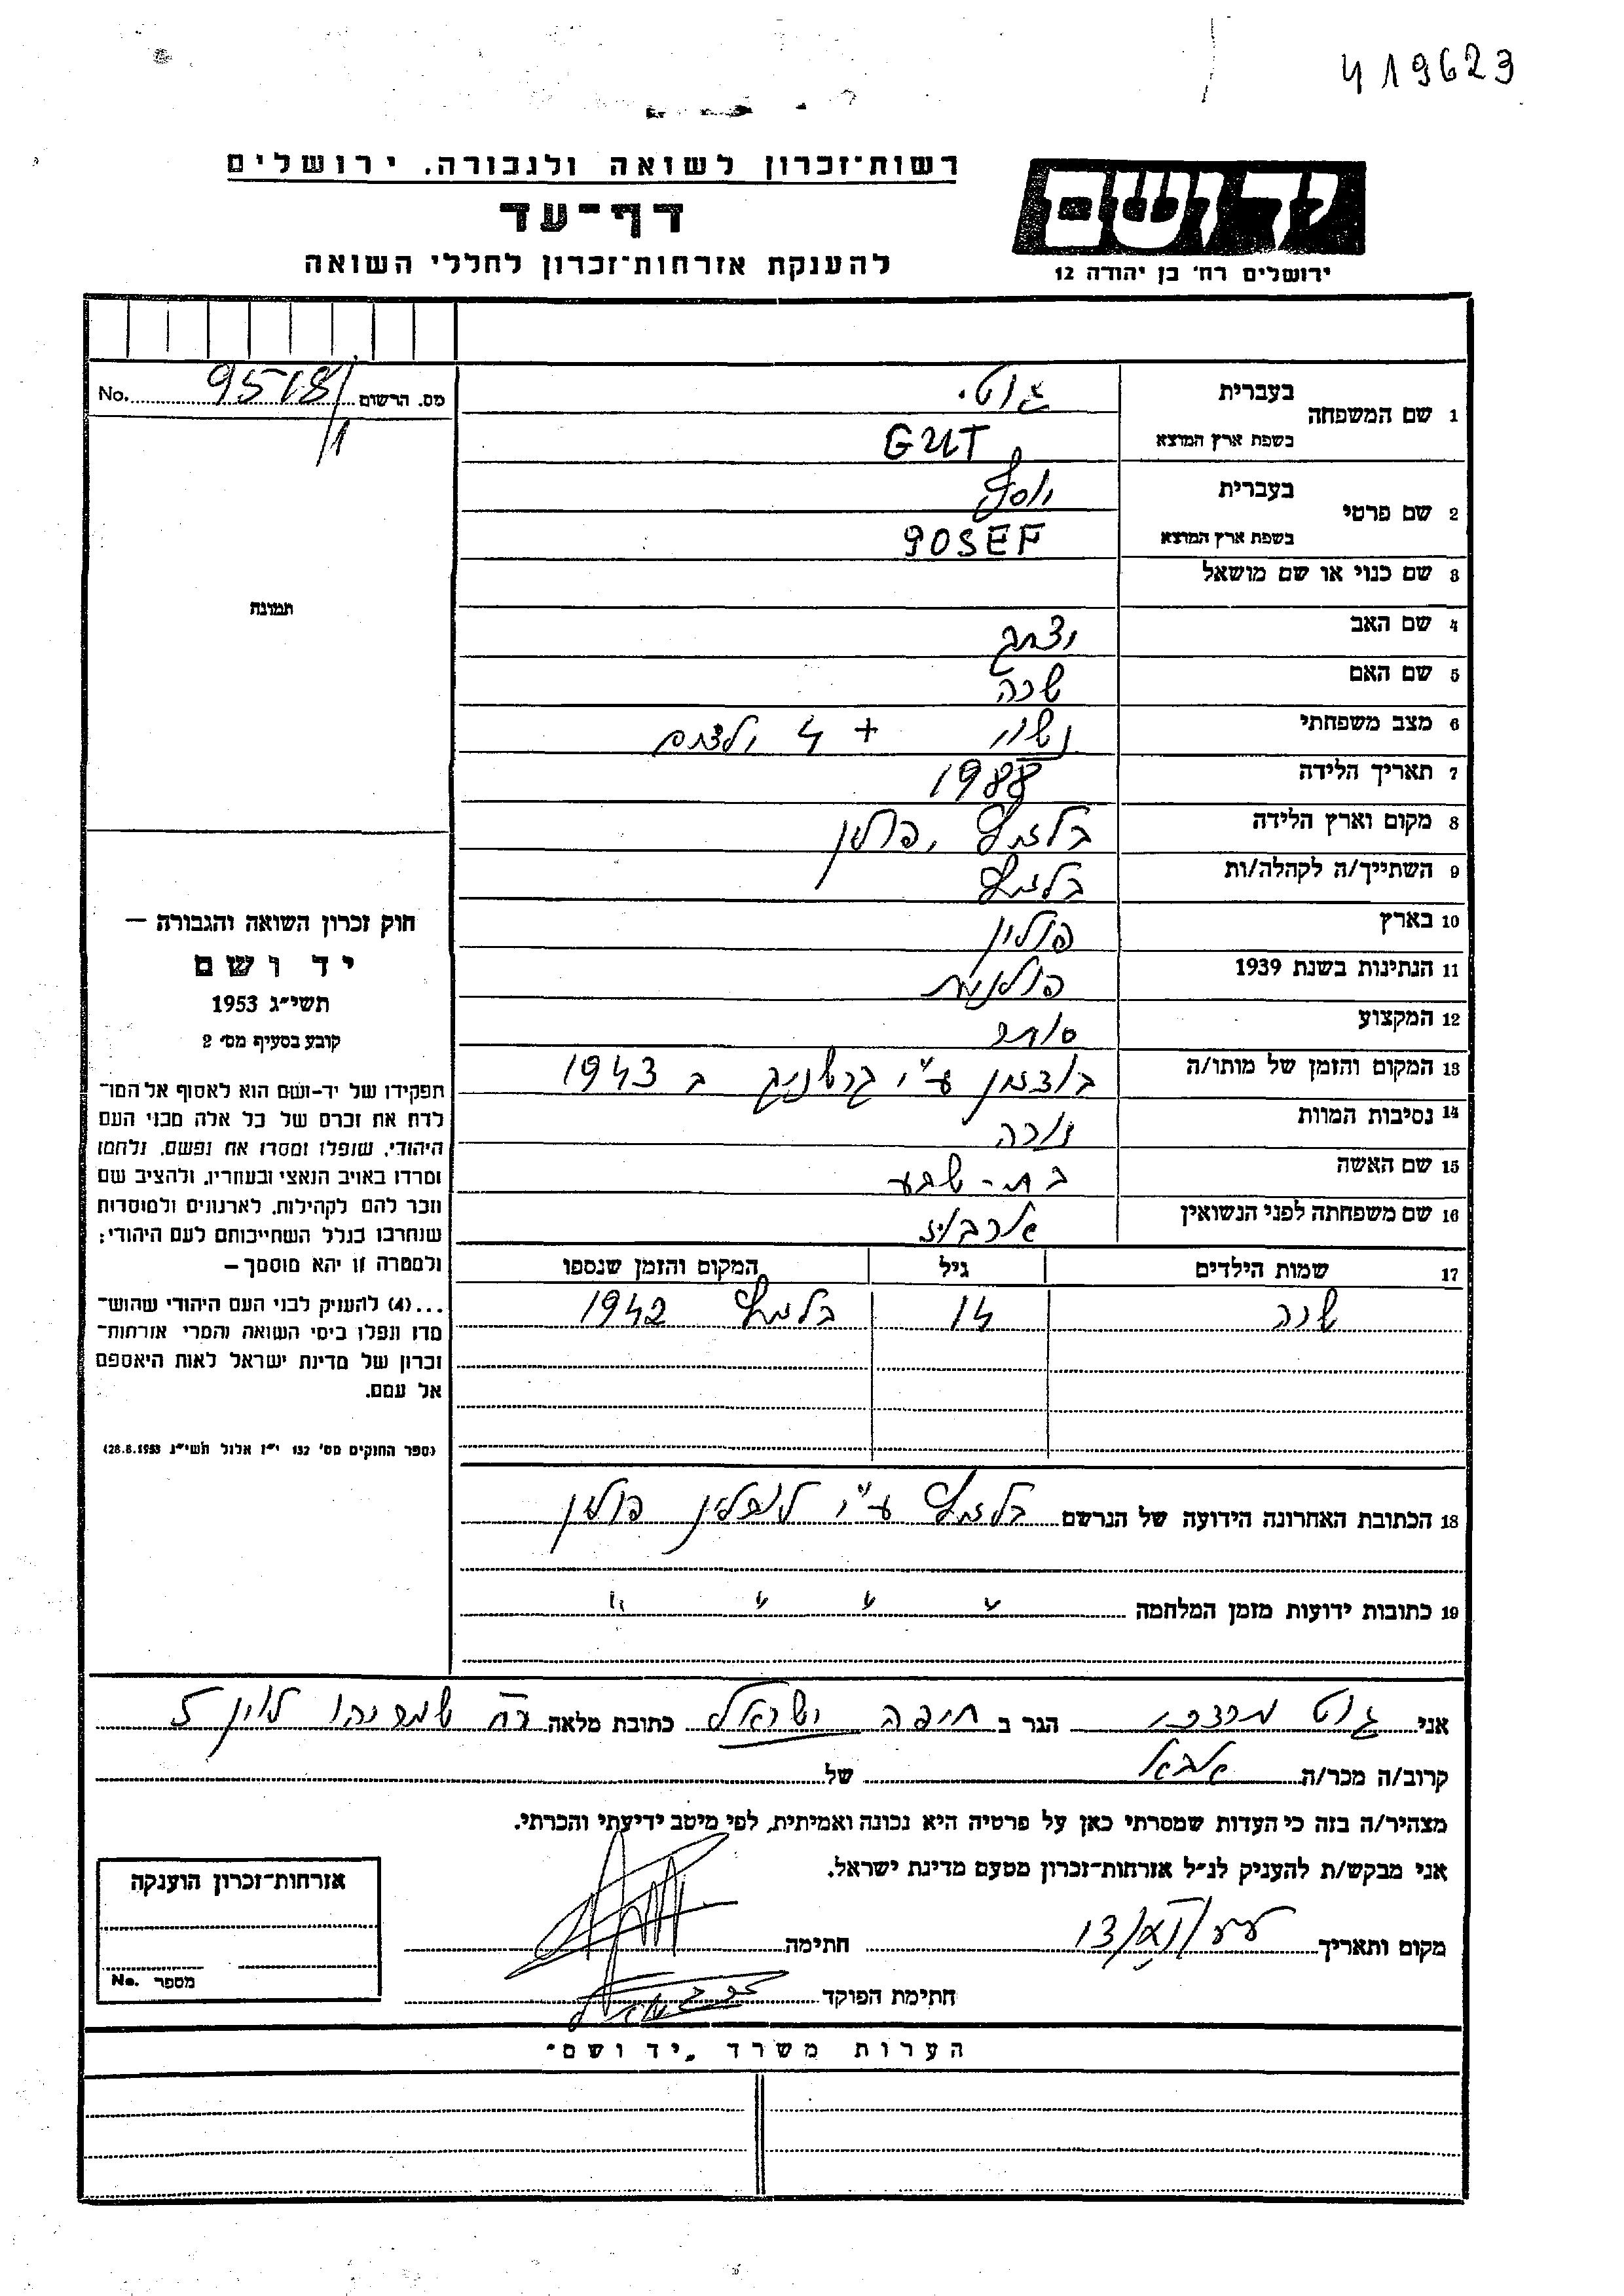 419623
רשות־זכרון לשואה ולגבורה. ירושלים
יד ושם
דף־עד
להענקת אזרחות־זכרון לחללי השואה
ירושלים רח׳ בן יהודה 12
1 שם המשפחה בעברית גוט.
בשפת ארץ המוצא GUT
2 שם פרטי בעברית יוסף
בשפת ארץ המוצא JOSEF
3 שם כנוי או שם מושאל
4 שם האב יצחק
5 שם האם שרה
6 מצב משפחתי נשוי + 4 ילדים
7 תאריך הלידה 1988
8 מקום וארץ הלידה בלזיץ, פולין
9 השתייך/ה לקהלה/ות בלזיץ
10 בארץ פולין
11 הנתינות בשנת 1939 פולאנית
12 המקצוע סוחר
13 המקום והזמן של מותו/ה בודזין ע"י קרשניק ב 1943
14 נסיבות המוות נורה
15 שם האשה בת-שבע
16 שם משפחתה לפני הנשואין
17 שמות הילדים גיל המקום והזמן שנספו
שרה 14 בלזיץ 1942
18 הכתובת האחרונה הידועה של הנרשם בלזיץ ע"י לובלין פולין
19 כתובות ידועות מזמן המלחמה " " " "
מס. הרשום 9518/1 No.
תמונה
חוק זכרון השואה והגבורה —
יד ושם
תשי״ג 1953
קובע בסעיף מס׳ 2
תפקידו של יד־ושם הוא לאסוף אל המו־
לדת את זכרם של כל אלה מבני העם
היהודי, שנפלו ומסרו את נפשם, נלחמו
ומרדו באויב הנאצי ובעוזריו, ולהציב שם
וזכר להם לקהילות, לארגונים ולמוסדות
שנחרבו בגלל השתייכותם לעם היהודי;
ולמטרה זו יהא מוסמך —
...(4) להעניק לבני העם היהודי שהוש־
מדו ונפלו בימי השואה והמרי אזרחות־
זכרון של מדינת ישראל לאות היאספם
אל עמם.
(ספר החוקים מס׳ 132 י״ז אלול תשי״ג 28.8.1953)
אני גוט מרדכי הגר ב חיפה ישראל כתובת מלאה רח שמריהו לוין 5
קרוב/ה מכר/ה אבא של
מצהיר/ה בזה כי העדות שמסרתי כאן על פרטיה היא נכונה ואמיתית, לפי מיטב ידיעתי והכרתי.
אני מבקש/ת להעניק לנ״ל אזרחות־זכרון מטעם מדינת ישראל.
מקום ותאריך חתימה
חתימת הפוקד
אזרחות־זכרון הוענקה
מספר No.
הערות משרד „יד ושם״